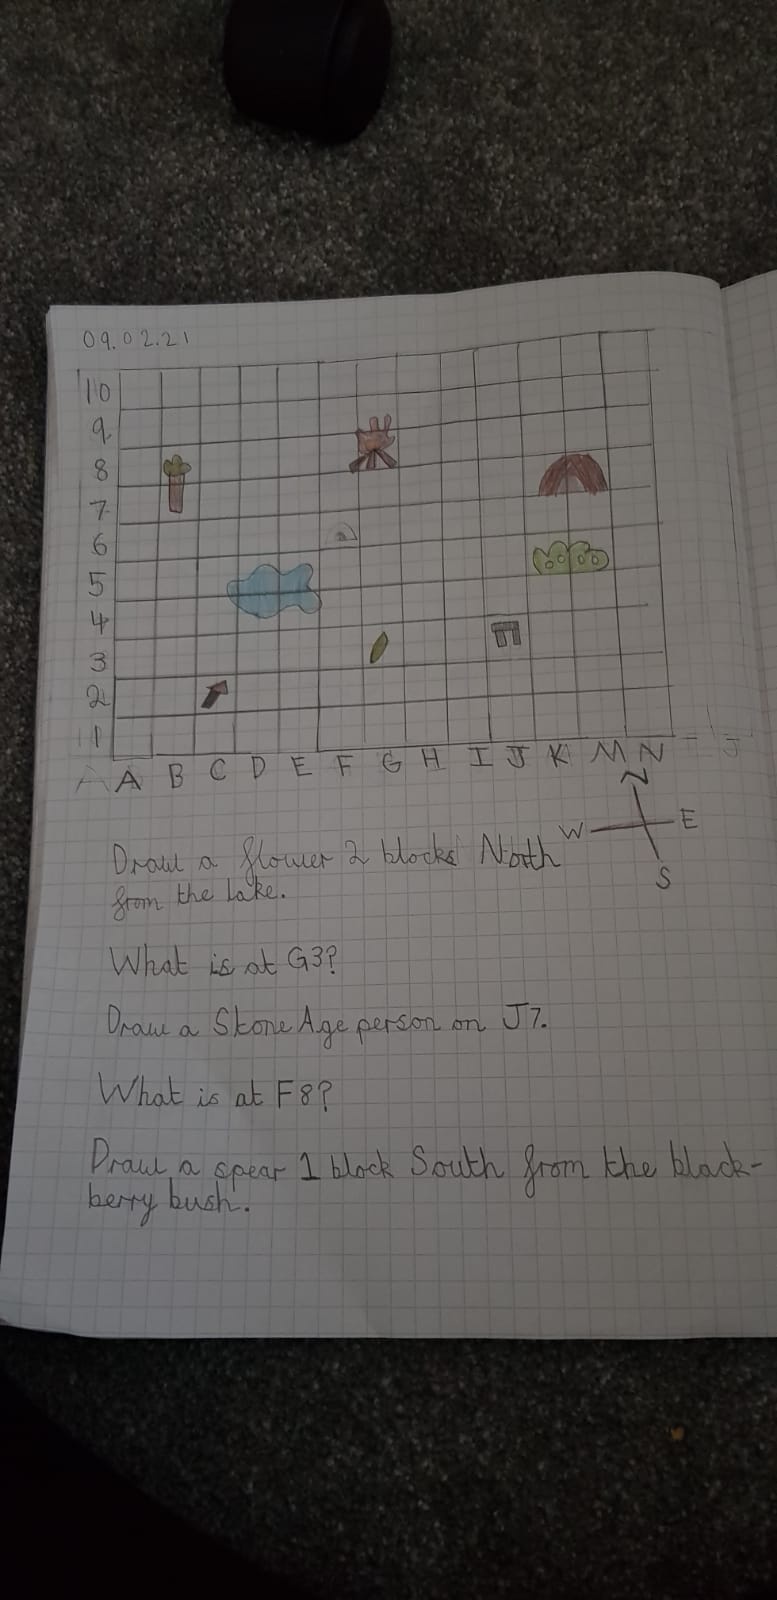 09.02.21
10
9
8
7
6
5
4
3
2
1
A B C D E F G H I J K M N
N
W E
S
Draw a flower 2 blocks North
from the lake.
What is at G3?
Draw a Stone Age person on J7.
What is at F8?
Draw a spear 1 block South from the black-
berry bush.